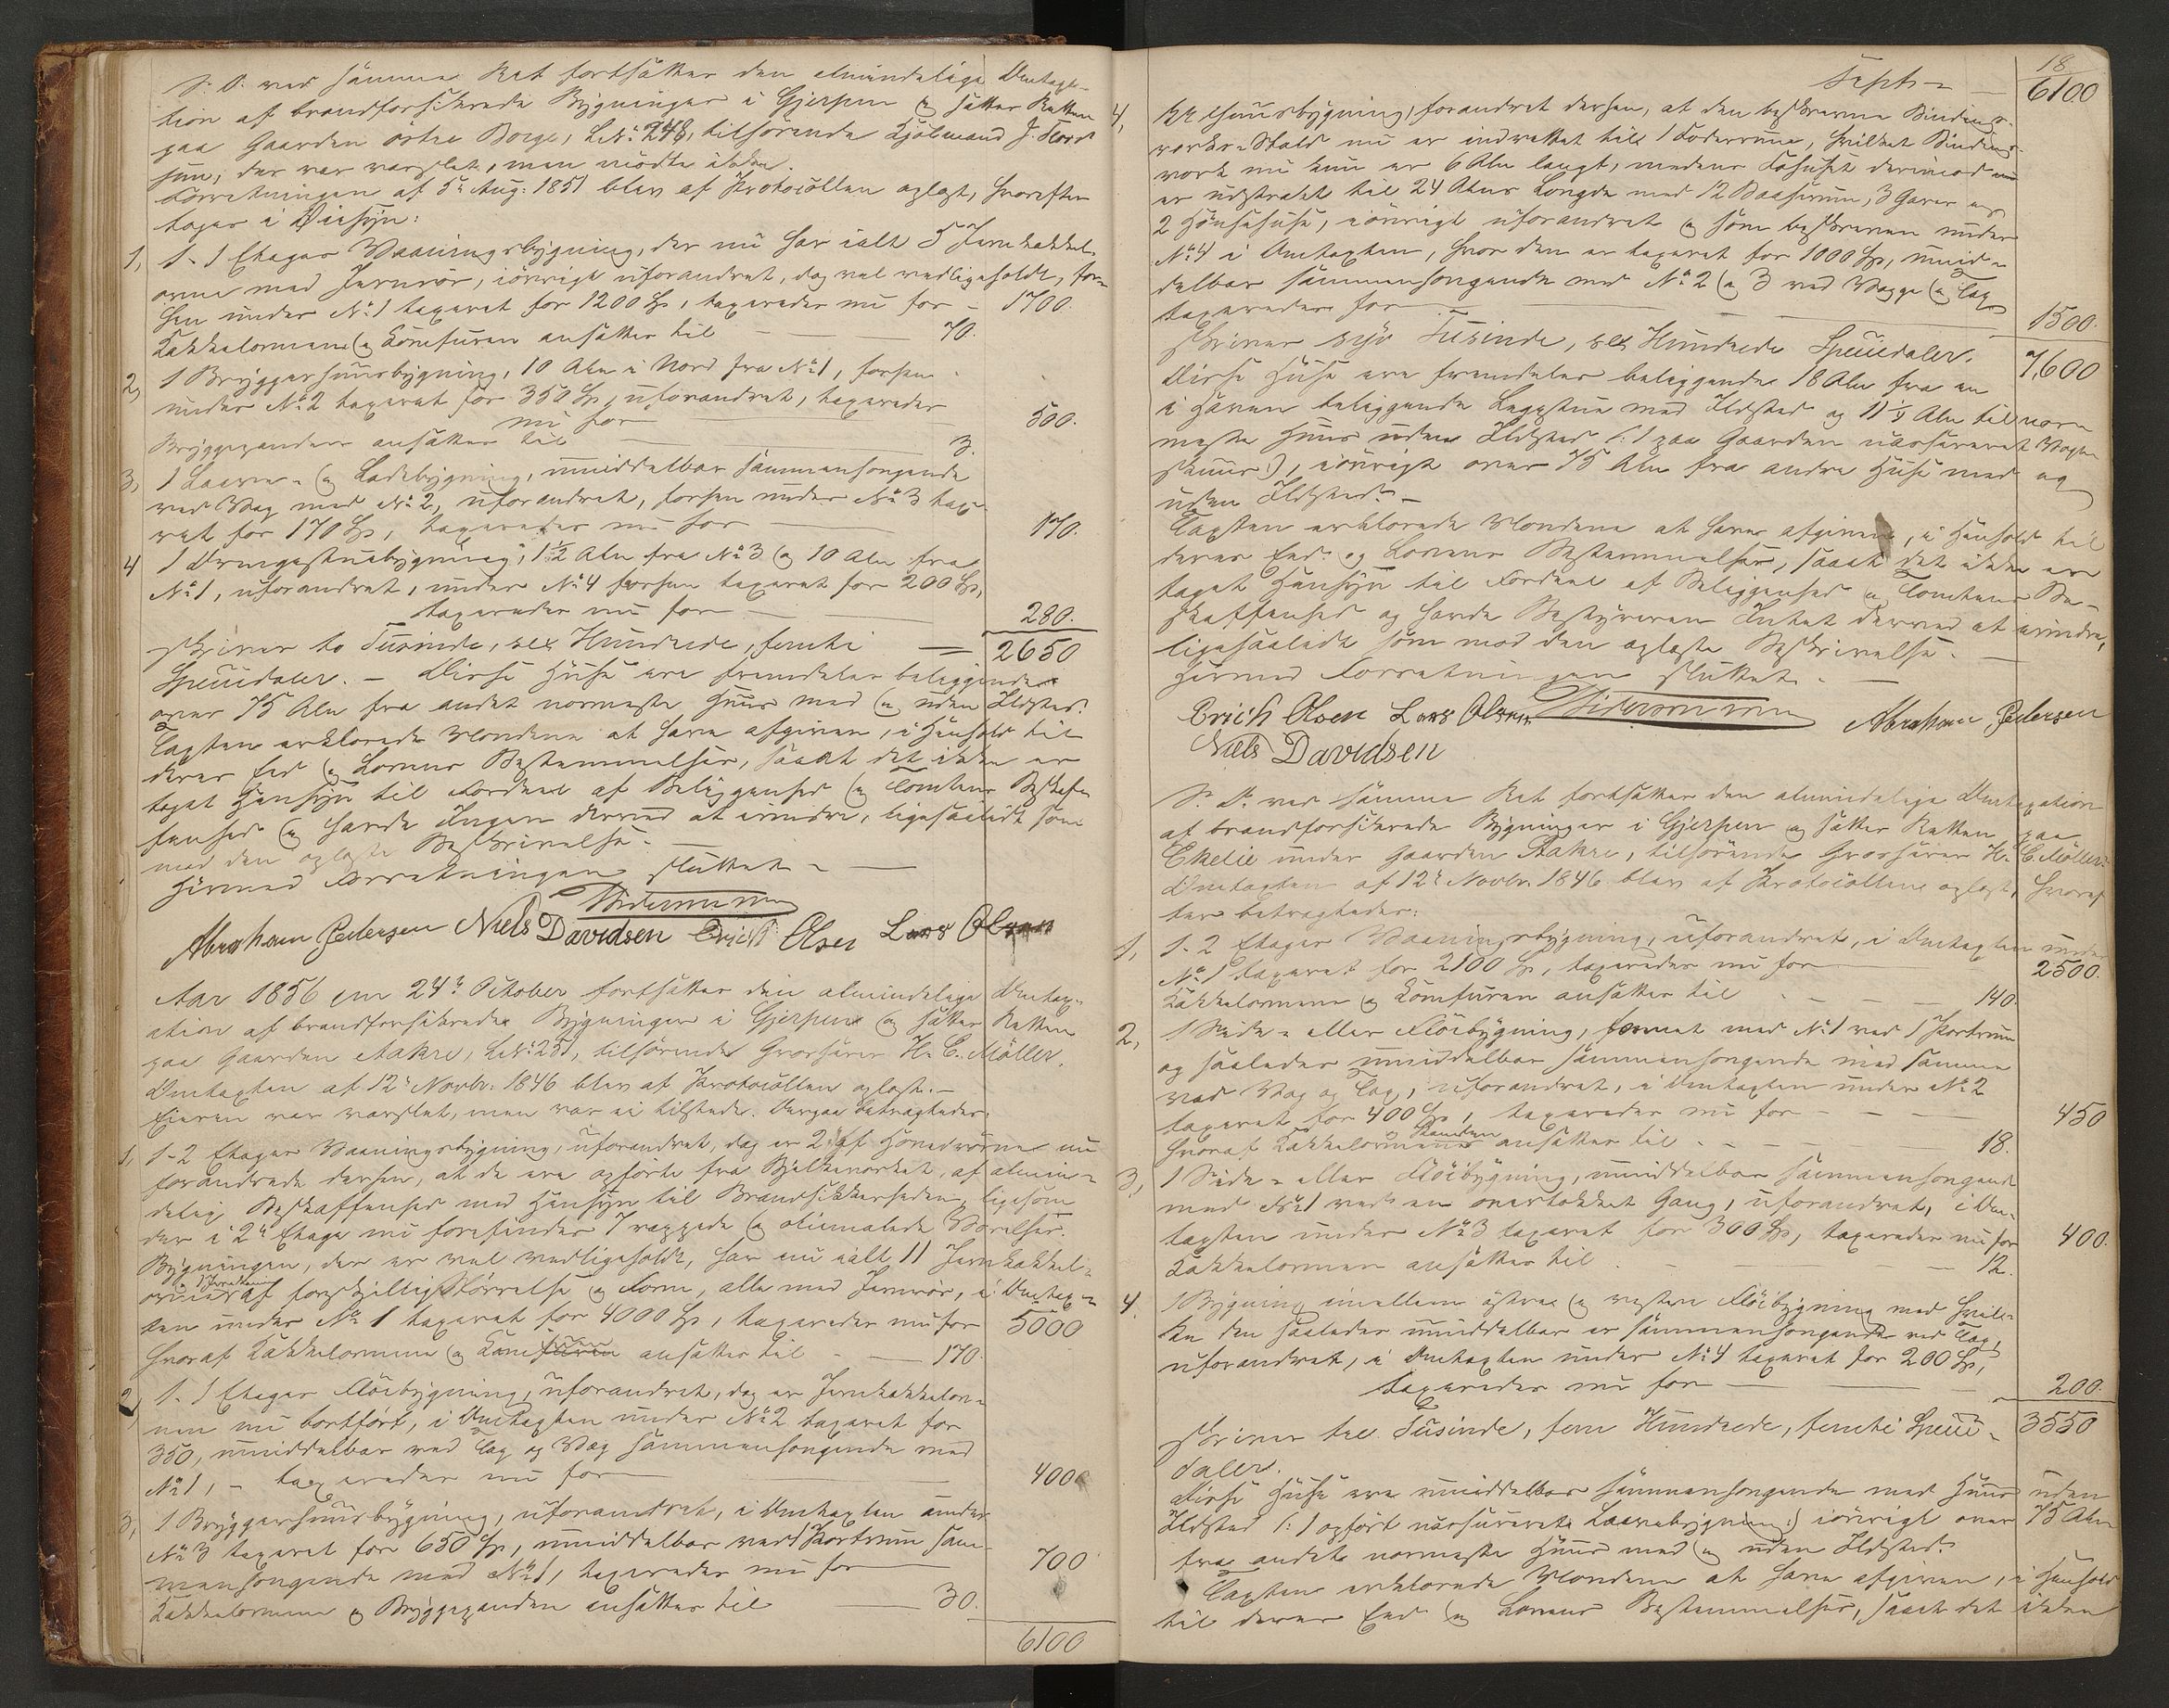 S. D. ved samme Ret fortsattes den almindelige Omtaxa-
tion af brandforsikrede Bygninger i Gjerpen og sattes Retten
paa Gaarden østre Borge, LNo: 248, tilhørende
der var varslet, men mødte ikke.
Forretningen af 5te Aug: 1851 blev af Protocollen oplæst, hvorefter
toges i Øiesyn:
1, 1- 1 Etages Vaaningsbygning, der nu har ialt 5 Jernkakkel-
ovne med Jernrør, iøvrigt uforandret, dog vel vedligeholdt, for-
hen under No 1 taxeret for 1200 Sp, taxeredes nu for - 1700.
Kakkelovnene og Comfuren ansattes til - 70.
2, 1 Bryggerhuusbygning, 10 Alen i Nord fra No 1, forhen
under No 2 taxeret for 350 Sp, uforandret, taxeredes
nu for 500.
Bryggepanden ansattes til 3.
3, 1 Laave- og Ladebygning, umiddelbar sammenhængende
ved Væg med No 2, uforandret, forhen under No 3 taxe-
ret for 170 Sp, taxeredes nu for 170.
4 1 Drengestuebygning, 1½ Alen fra No 3 og 10 Alen fra
No 1, uforandret, under No 4 forhen taxeret for 200 Sp,
taxeredes nu for 280.
skriver to Tusinde, sex Hundrede, femti 2650
Speciedaler. - Disse Huse ere fremdeles beliggende
over 75 Alen fra andet nærmeste Huus med og uden Ildsted.
Taxten erklærede Mændene at have afgivet, i Henhold til
deres Eed og Lovens Bestemmelser, saa at det ikke er
taget Hensyn til Fordeel af Beliggenhed og Tomtens Beskaf-
fenhed og havde Ingen derved at erindre, ligesaalidt som
mod den oplæste Beskrivelse.
Hermed Forretningen sluttet.
Abraham Pedersen Niels Davidsen Erich Olsen Lars Olsen
Aar 1856 den 24de October fortsattes den almindelige Omtax-
ation af brandforsikrede Bygninger i Gjerpen og sattes Retten
paa Gaarden Aakre, LNo: 251, tilhørende Grosserer H. C. Møller.
Omtaxten af 12te Novbr: 1846 blev af Protocollen oplæst.
Eieren var varslet, men var ei tilstede. Derpaa betragtedes:
1, 1- 2 Etages Vaaningsbygning, uforandret, dog er 2 nu
forandrede derhen, at de ere opførte fra Bjelkeværket, af almin-
delig Beskaffenhed med Hensyn til Brandsikkerheden, ligesom
der i 2den Etage nu forefindes 7 og oliemalede Værelser.
Bygningen, der er vel vedligeholdt, har nu ialt 11 Jernkakkel-
ovne af forskjellig Størrelse og Form, alle med Jernrør, i Omtax-
ten under No 1 taxeret for 4000 Sp, taxeredes nu for 5000
hvoraf Kakkelovnene og Comfuren ansattes til - 170.
2, 1- 1 Etages Fløibygning, uforandret, dog er Jernkakkelov-
nen nu bortført, i Omtaxten under No 2 taxeret for
350, umiddelbar ved Tag og Væg sammenhængende med
No 1, - taxeredes nu for 400
3, 1 Bryggerhuusbygning, uforandret, i Omtaxten under
No 3 taxeret for 650 Sp, umiddelbar ved 1 Portrum sam-
menhængende med No 1, taxeredes nu for 700
Kakkelovnene og Bryggepanden ansattes til 30.
6100
18
Transp- 6100
4, huusbygning, forandret derhen, at den beskrevne Bindings-
værks-Stald nu er indrettet til 1 Foderrum, hvilket Bindings-
værk nu kun er 6 Alen langt, medens Fæhuset derimod nu
er udstrakt til 24 Alens Længde med 12 Baaserum, 3
2 Hønsehuse, iøvrigt uforandret og som beskreven under
No 4 i Omtaxten, hvor den er taxeret for 1000 Sp, umid-
delbar sammenhængende med No 2 og 3 ved Vægge og Tag
taxeredes for 1500.
skriver syv Tusinde, sex Hundrede Speciedaler. 7,600
Disse Huse ere fremdeles beliggende 18 Alen fra en
i Haven beliggende Lyststue med Ildsted og 11½ Alen til nær-
meste Huus uden Ildsted (: 1 paa Gaarden uassureret
:), iøvrigt over 75 Alen fra andre Huse med og
uden Ildsted. -
Taxten erklærede Mændene at have afgivet, i Henhold til
deres Eed og Lovens Bestemmelser, saa at det ikke er
taget Hensyn til Fordeel af Beliggenhed og Tomtens Be-
skaffenhed og havde Bestyreren Intet derved at erindre,
ligesaalidt som mod den oplæste Beskrivelse.
Hermed Forretningen sluttet.
Erich Olsen Lars Olsen Abraham Pedersen
Niels Davidsen
S. D. ved samme Ret fortsattes den almindelige Omtaxation
af brandforsikrede Bygninger i Gjerpen og sattes Retten paa
Ekelie under Gaarden Aakre, tilhørende Grosserer H. C. Møller.
Omtaxten af 12te Novbr. 1846 blev af Protocollen oplæst, hvoref-
ter betragtedes:
1, 1- 2 Etages Vaaningsbygning, uforandret, i Omtaxten under
No 1 taxeret for 2100 Sp, taxeredes nu for 2500.
Kakkelovnene og Comfuren ansattes til 140.
2, 1 Side- eller Fløibygning, forenet med No 1 ved 1 Portrum
og saaledes umiddelbar sammenhængende med samme
ved Væg og Tag, uforandret, i Omtaxten under No 2
taxeret for 400 Sp, taxeredes nu for 450
hvoraf Kakkelovnene ansattes til 18.
3, 1 Side- eller Fløibygning, umiddelbar sammenhængende
med No 1 ved en overtækket Gang, uforandret, i Om-
taxten under No 3 taxeret for 300 Sp, taxeredes nu for 400.
Kakkelovnen ansattes til 12.
4. 1 Bygning imellem østre og vestre Fløibygning med hvil-
ken den saaledes umiddelbar er sammenhængende ved Tag,
uforandret, i Omtaxten under No 4 taxeret for 200 Sp,
taxeredes nu for 200.
skriver tre Tusinde, fem Hundrede, femti Specie- 3550
daler.
Disse Huse ere umiddelbar sammenhængende med Huus uden
Ildsted (: 1 opført uassureret Laavebygning :) iøvrigt over 75 Alen
fra andet nærmeste Huus med og uden Ildsted.
Taxten erklærede Mændene at have afgivet, i Henhold
til deres Eed og Lovens Bestemmelser, saa at det ikke